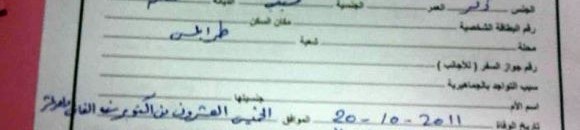 الجنس ذكر العمر الجنسية ليبي الديانة
رقم البطاقة الشخصية مكان السكن
محلة شعبية طرابلس
رقم جواز السفر ( للأجانب )
سبب التواجد بالجماهيرية
اسم الأم جنسيتها
تاريخ الوفاة 20-10-2011 الموافق الخميس العشرون من أكتوبر سنة ألفان